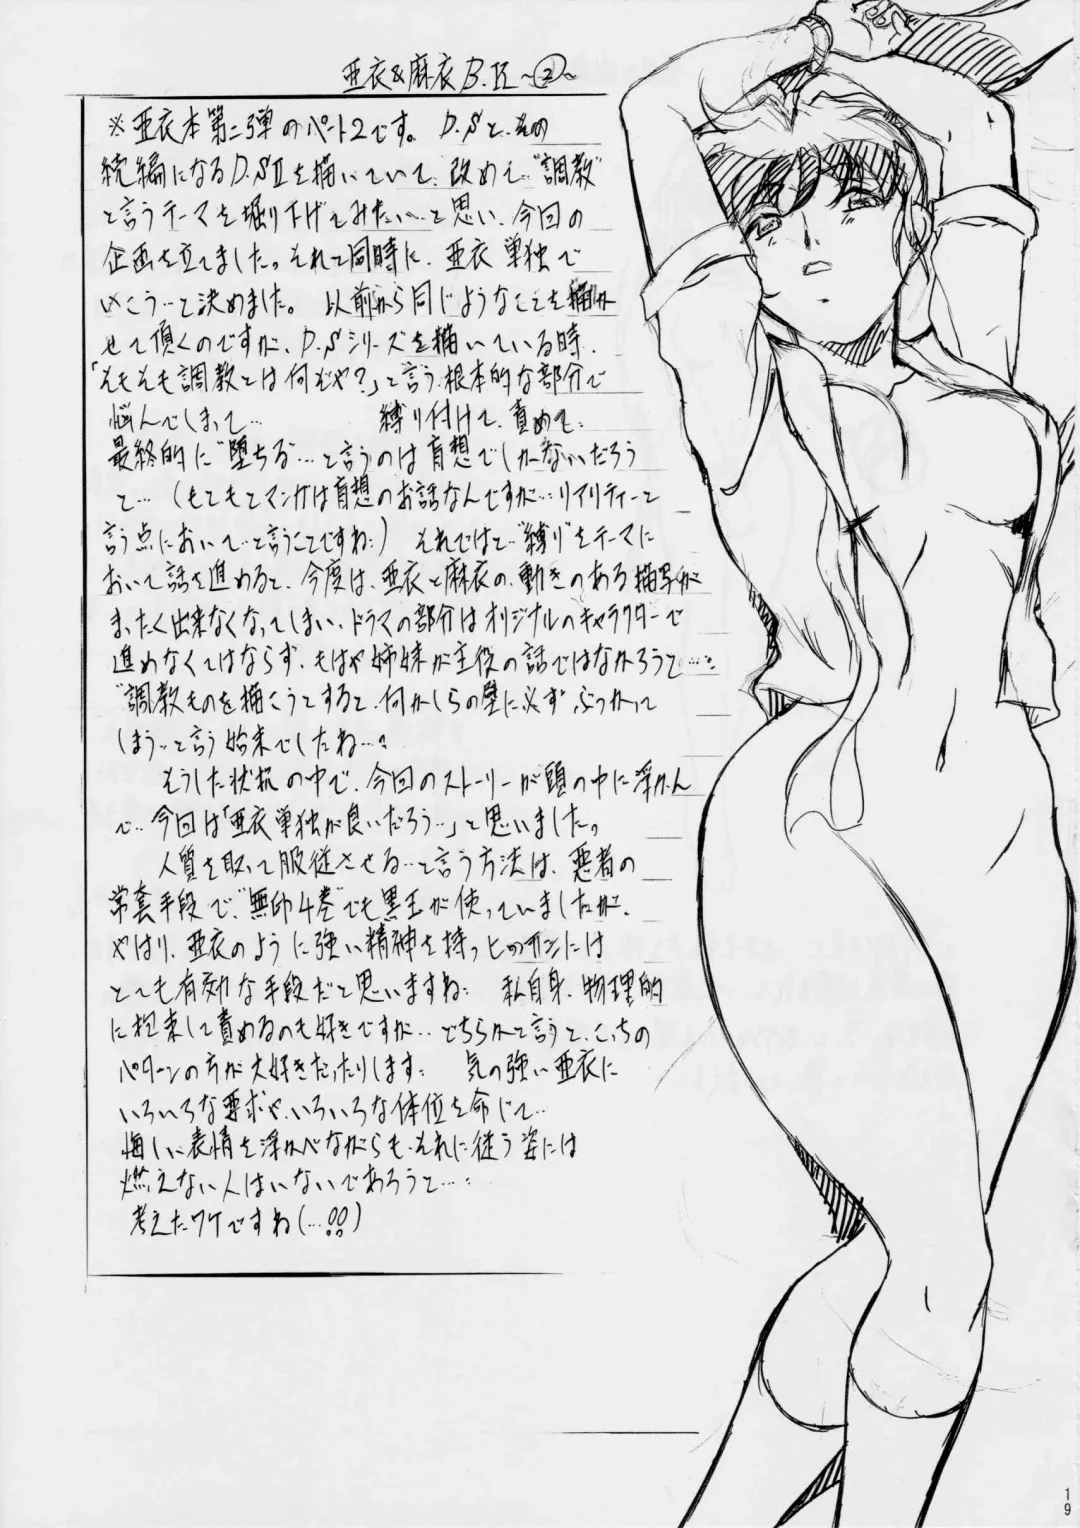 亜衣&麻衣 B.R ~②~
※亜衣本第二弾のパート2です。 D.Sと、その
続編になるD.SⅡを描いていて、改めて…"調教"
と言うテーマを堀り下げてみたい…と思い、今回の
企画を立てました。それと同時に、亜衣単独で
いこう…と決めました。 以前から同じようなことを描か
せて頂くのですが、D.Sシリーズを描いている時、
「そもそも調教とは何ぞや?」と言う根本的な部分で
悩んでしまって… 縛り付けて、責めて…
最終的に"堕ちる"…と言うのは盲想でしかないだろう
と… (もともとマンガは盲想のお話なんですが…リアリティーと
言う点において…と言うことですね…) それではと…"縛り"をテーマに
おいて話を進めると、今度は、亜衣と麻衣の、動きのある描写が
まったく出来なくなってしまい、ドラマの部分はオリジナルのキャラクターで
進めなくてはならず、もはや姉妹が主役の話ではなかろうと…。
"調教ものを描こうとすると、何かしらの壁に必ずぶつかって
しまう…と言う始末でしたね…。
そうした状況の中で、今回のストーリーが頭の中に浮かん
で…今回は「亜衣単独が良いだろう…」と思いました。
人質を取って服従させる…と言う方法は、悪者の
常套手段で、"無印4巻"でも黒王が使っていましたが、
やはり、亜衣のように強い精神を持つヒロインには
とても有効な手段だと思いますね… 私自身、物理的
に拘束して責めるのも好きですが…どちらかと言うと、こっちの
パターンの方が大好きだったりします… 気の強い亜衣に
いろいろな要求や、いろいろな体位を命じて…
悔しい表情を浮かべながらも、それに従う姿には
燃えない人はいないであろうと…。
考えたワケですね(…!!)
19